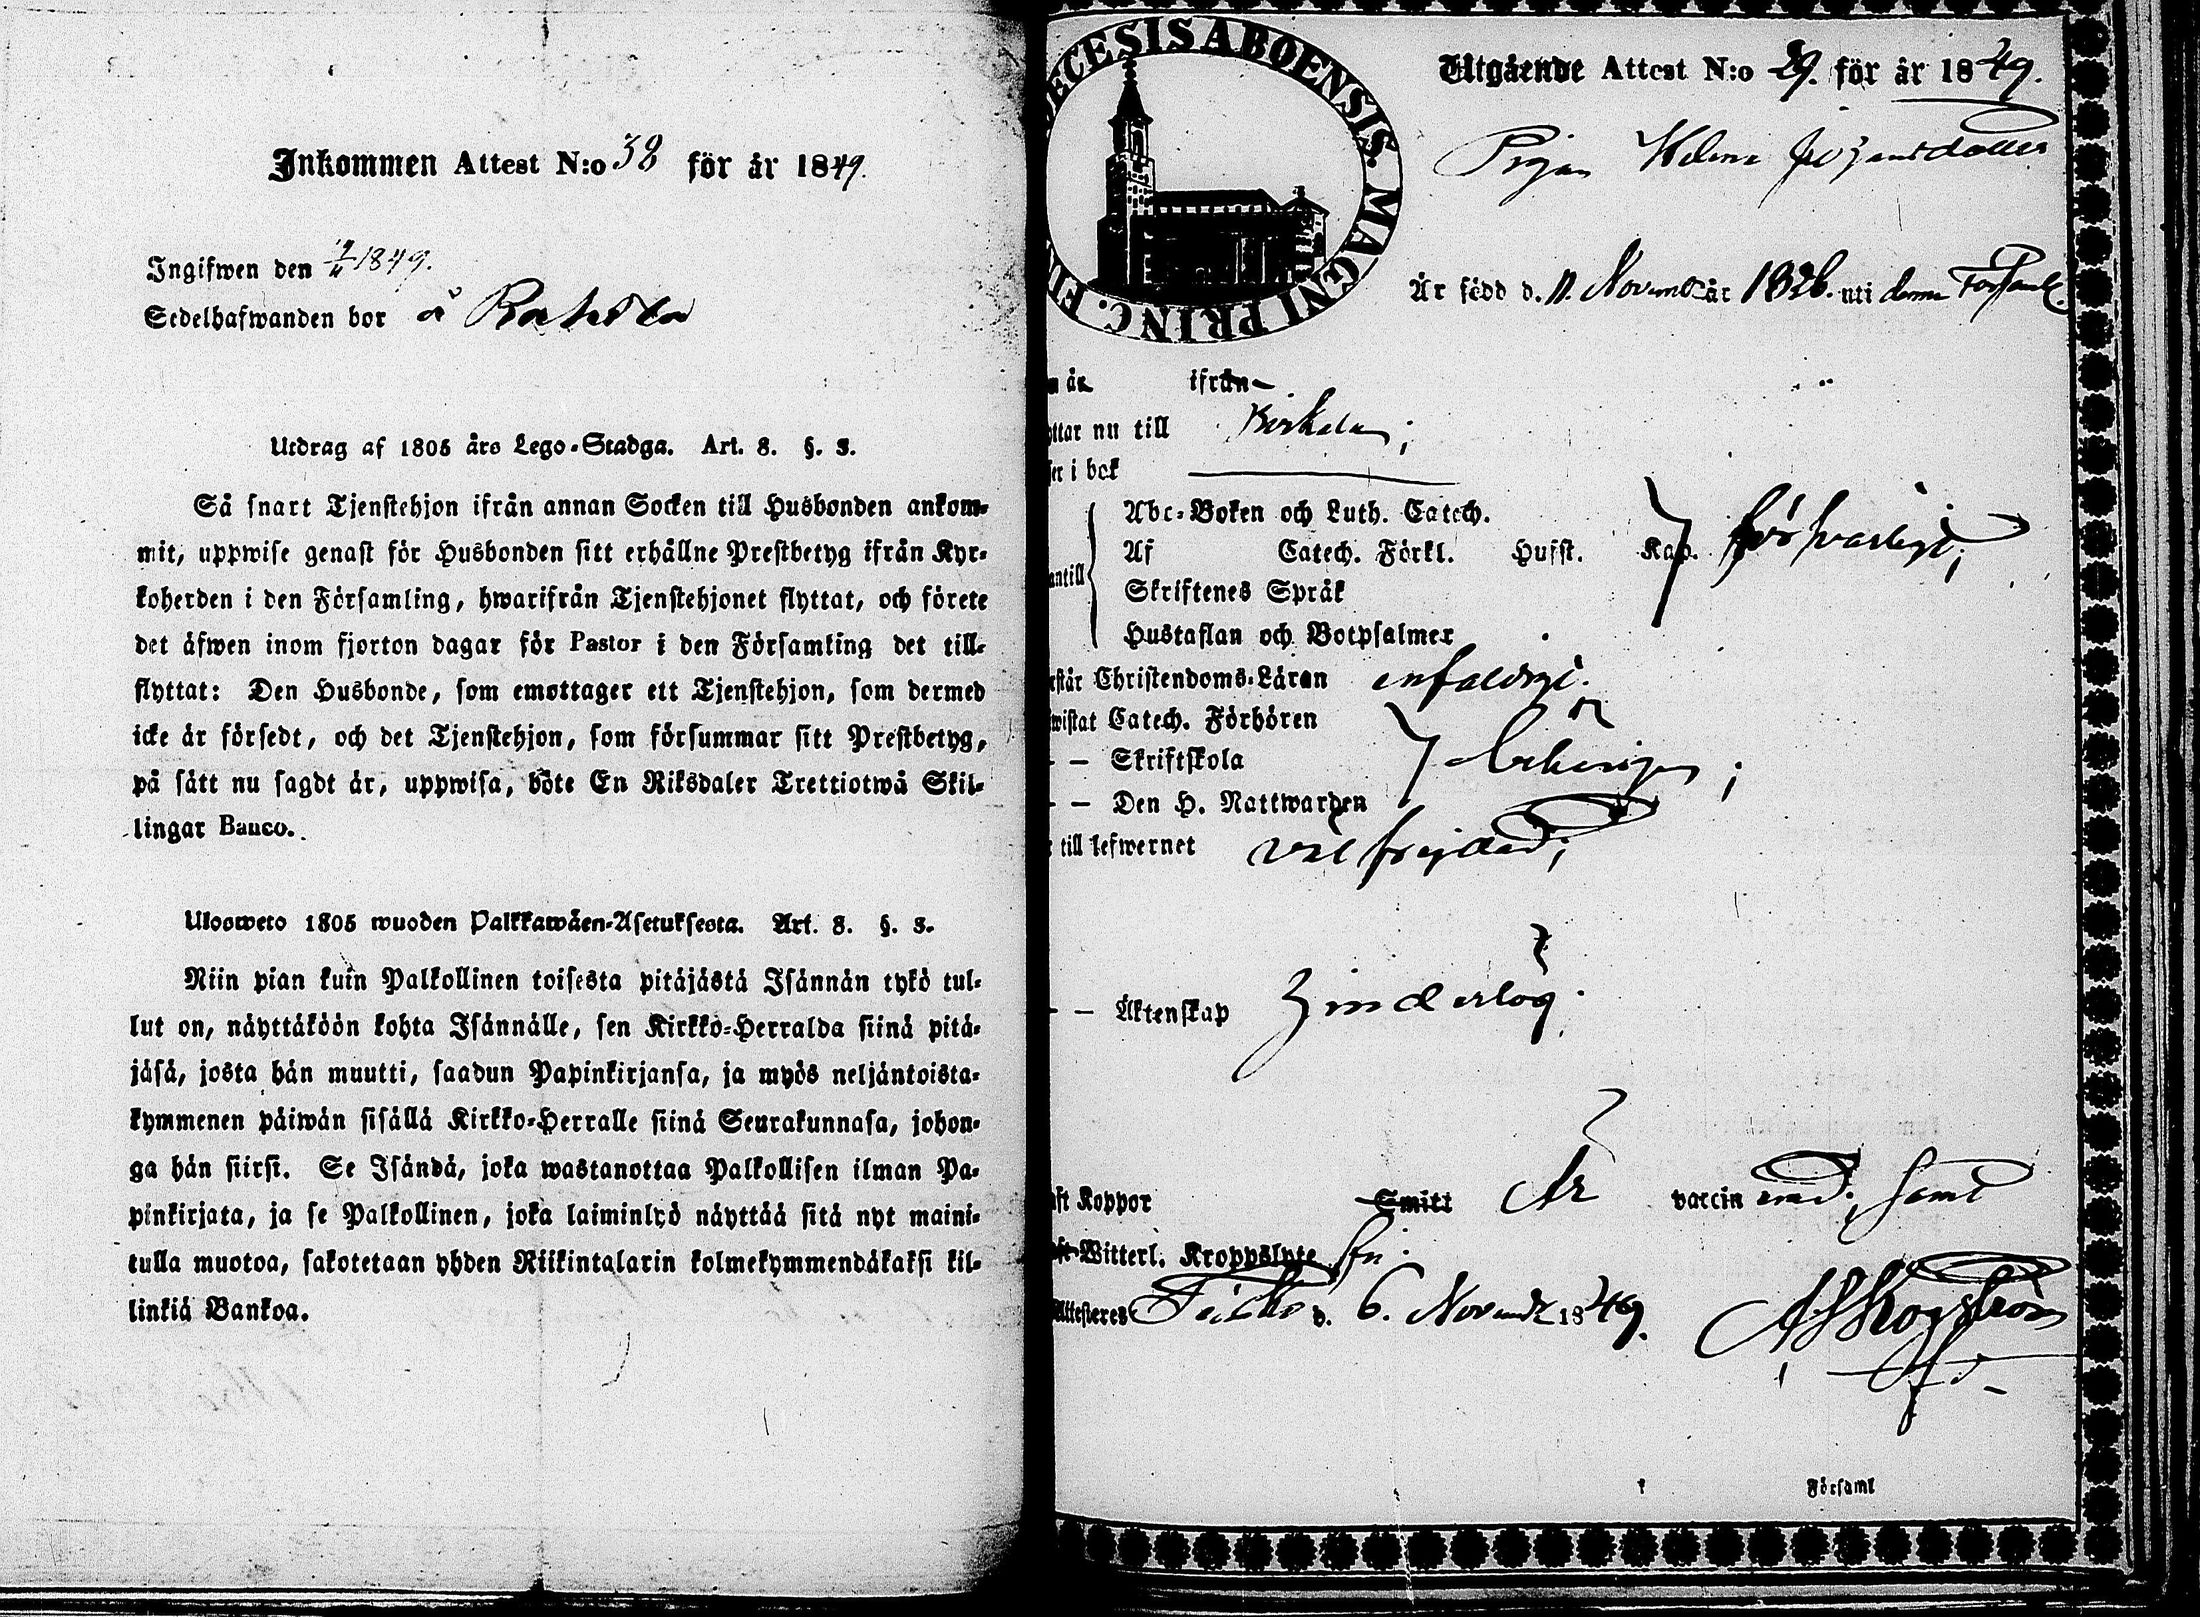 Inkommen Attest N:o 38 för år 1849.
Ingifwen den 19/11 1849.
Sedelhafwanden bor å
Utdrag af 1805 års Lego-Stadga. Art. 8. §. 3.
Så snart Tjenstehjon ifrån annan Socken till Husbonden ankom-
mit, uppwise genast för Husbonden sitt erhållne Prestbetyg ifrån Kyr-
koherden i den Församling, hwarifrån Tjenstehjonet flyttat, och förete
det äfwen inom fjorton dagar för Pastor i den Församling det till-
flyttat: Den Husbonde, som emottager ett Tjenstehjon, som dermed
icke är försedt, och det Tjenstehjon, som försummar sitt Prestbetyg,
på sätt nu sagdt är, uppwisa, böte En Riksdaler Trettiotwå Skil-
lingar Banco.
Ulosweto 1805 wuoden Palkkawäen-Asetuksesta. Art. 8. §. 3.
Niin pian kuin Palkollinen toisesta pitäjästä Isännän tykö tul-
lut on, näyttäköön kohta Isännälle, sen Kirkko-Herralda siinä pitä-
jäsä, josta hän muutti, saadun Papinkirjansa, ja myös neljäntoista-
kymmenen päiwän sisällä Kirkko-Herralle siinä Seurakunnasa, johon-
ga hän siirsi. Se Isändä, joka wastanottaa Palkollisen ilman Pa-
pinkirjata, ja se Palkollinen, joka laiminlyö näyttää sitä nyt maini-
tulla muotoa, sakotetaan yhden Riikintalarin kolmekymmendäkaksi kil-
linkiä Bankoa.
ECESIS ABOENSIS. MAGNI PRINC. FI
Utgående Attest N:o 29. för år 1849.
Pigan Helena Johansdotter
Är född d. 11. November år 1826. uti denna Församl.
år ifrån
ttar nu till Birkala;
ser i bok
Abc-Boken och Luth. Catech.
Af Catech. Förkl. Husst. Kap. försvarligt;
antill
Skriftenes Språk
Hustaflan och Botpsalmer
står Christendoms-Läran enfaldigt.
wistat Catech. Förhören
– Skriftskola behörigen;
– – Den H. Nattwarden
till lefwernet väl frejdad;
– – Äktenskap hinderlög.
ft Koppor Smitt Är vaccinerad, samt
ft Witterl. Kroppslyte fri.
Attesteres d. 6. November 1849.
Församl